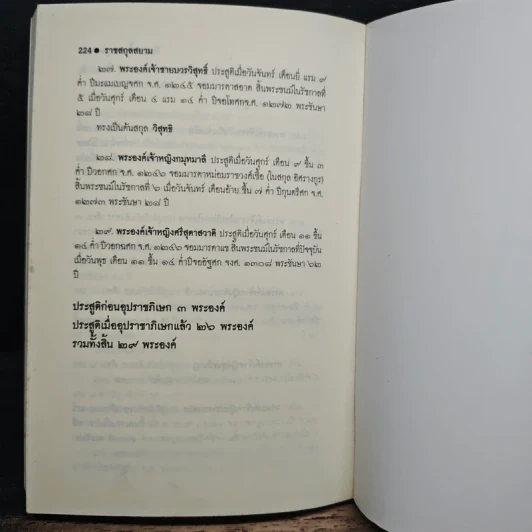 224 ● ราชสกุลสยาม
๒๗. พระองค์เจ้าชายบวรวิสุทธิ์ ประสูติเมื่อวันจันทร์ เดือนยี่ แรม ๙
ค่ำ ปีมะแมเบญจศก จ.ศ. ๑๒๔๕ จอมมารดาสอาด สิ้นพระชนม์ในรัชกาลที่
๕ เมื่อวันศุกร์ เดือน ๔ แรม ๑๔ ค่ำ ปีจอโทศก จ.ศ. ๑๒๗๒ พระชันษา
๒๘ ปี
ทรงเป็นต้นสกุล วิสุทธิ
๒๘. พระองค์เจ้าหญิงกมุทมาลี ประสูติเมื่อวันศุกร์ เดือน ๙ ขึ้น ๓
ค่ำ ปีวอกฉศก จ.ศ. ๑๒๔๖ จอมมารดาหม่อมราชวงศ์เชื้อ (ในสกุล อิศรางกูร)
สิ้นพระชนม์ในรัชกาลที่ ๖ เมื่อวันจันทร์ เดือนอ้าย ขึ้น ๗ ค่ำ ปีกุนตรีศก จ.ศ.
๑๒๗๓ พระชันษา ๒๘ ปี
๒๙. พระองค์เจ้าหญิงศรีสุดาสวาดิ ประสูติเมื่อวันศุกร์ เดือน ๑๑ ขึ้น
๑๔ ค่ำ ปีวอกฉศก จ.ศ. ๑๒๔๖ จอมมารดาแข สิ้นพระชนม์ในรัชกาลที่ปัจจุบัน
เมื่อวันพุธ เดือน ๑๑ ขึ้น ๑๔ ค่ำ ปีจออัฐศก จ.ศ. ๑๓๐๘ พระชันษา ๖๒
ปี
ประสูติก่อนอุปราชภิเษก ๓ พระองค์
ประสูติเมื่ออุปราชาภิเษกแล้ว ๒๖ พระองค์
รวมทั้งสิ้น ๒๙ พระองค์